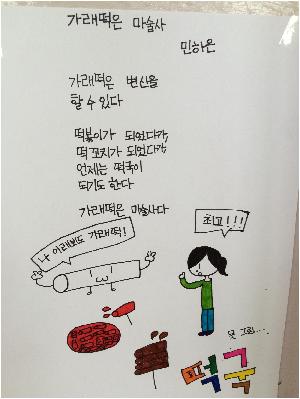 가래떡은 마술사
민하은
가래떡은 변신을
할 수 있다
떡볶이가 되었다가
떡꼬치가 되었다가
언제는 떡국이
되기도 한다
가래떡은 마술사다
나 이래봬도 가래떡!
최고!!!
못 그림....
떡국